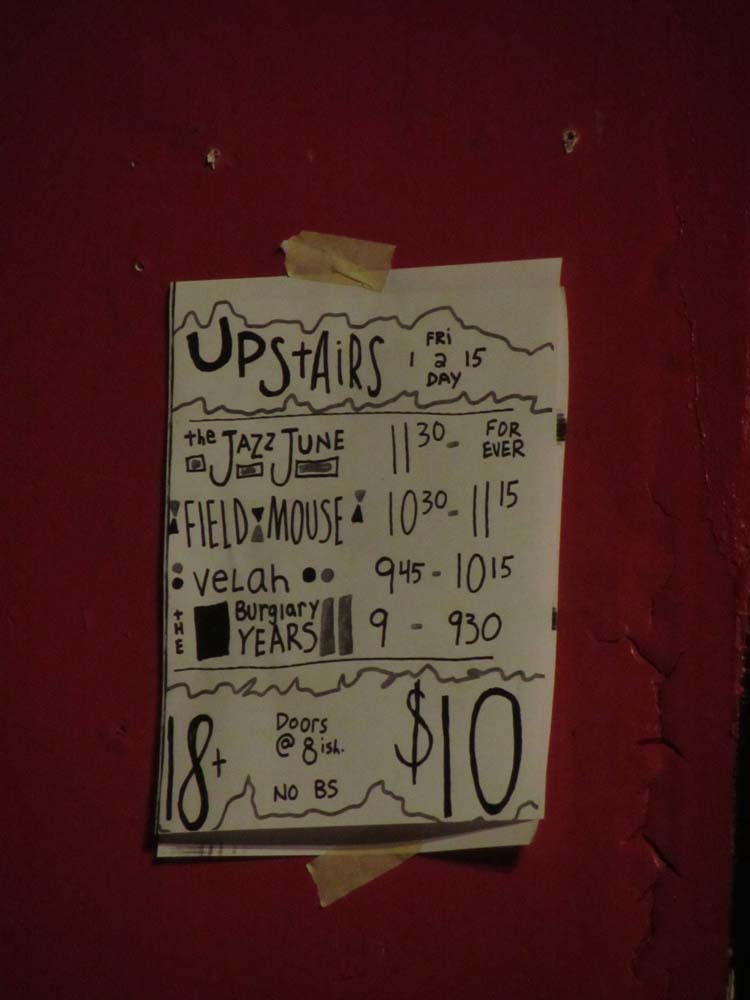 UPstAiRS FRi
1 2 15
DAY
the JAZZ JUNE 11 30 - FOR EVER
FIELD MOUSE 10 30 - 11 15
veLah 9 45 - 10 15
tHE Burglary YEARS 9 - 930
18+ Doors @ 8 ish. $10
NO BS